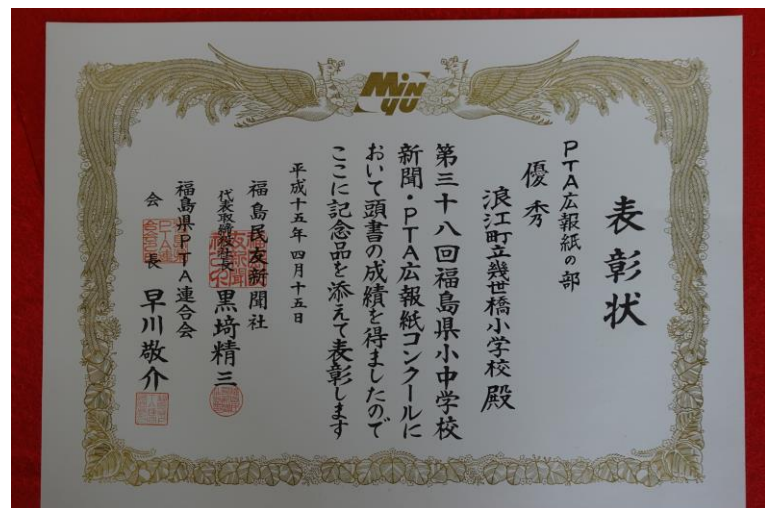 MiN
yu
表彰状
PTA広報紙の部
優秀
浪江町立幾世橋小学校 殿
第三十八回福島県小中学校
新聞・PTA広報紙コンクールに
おいて頭書の成績を得ましたので
ここに記念品を添えて表彰します
平成十五年四月十五日
福島民友新聞社
代表取締役社長 黒埼精三
福島県PTA連合会
会長 早川敬介